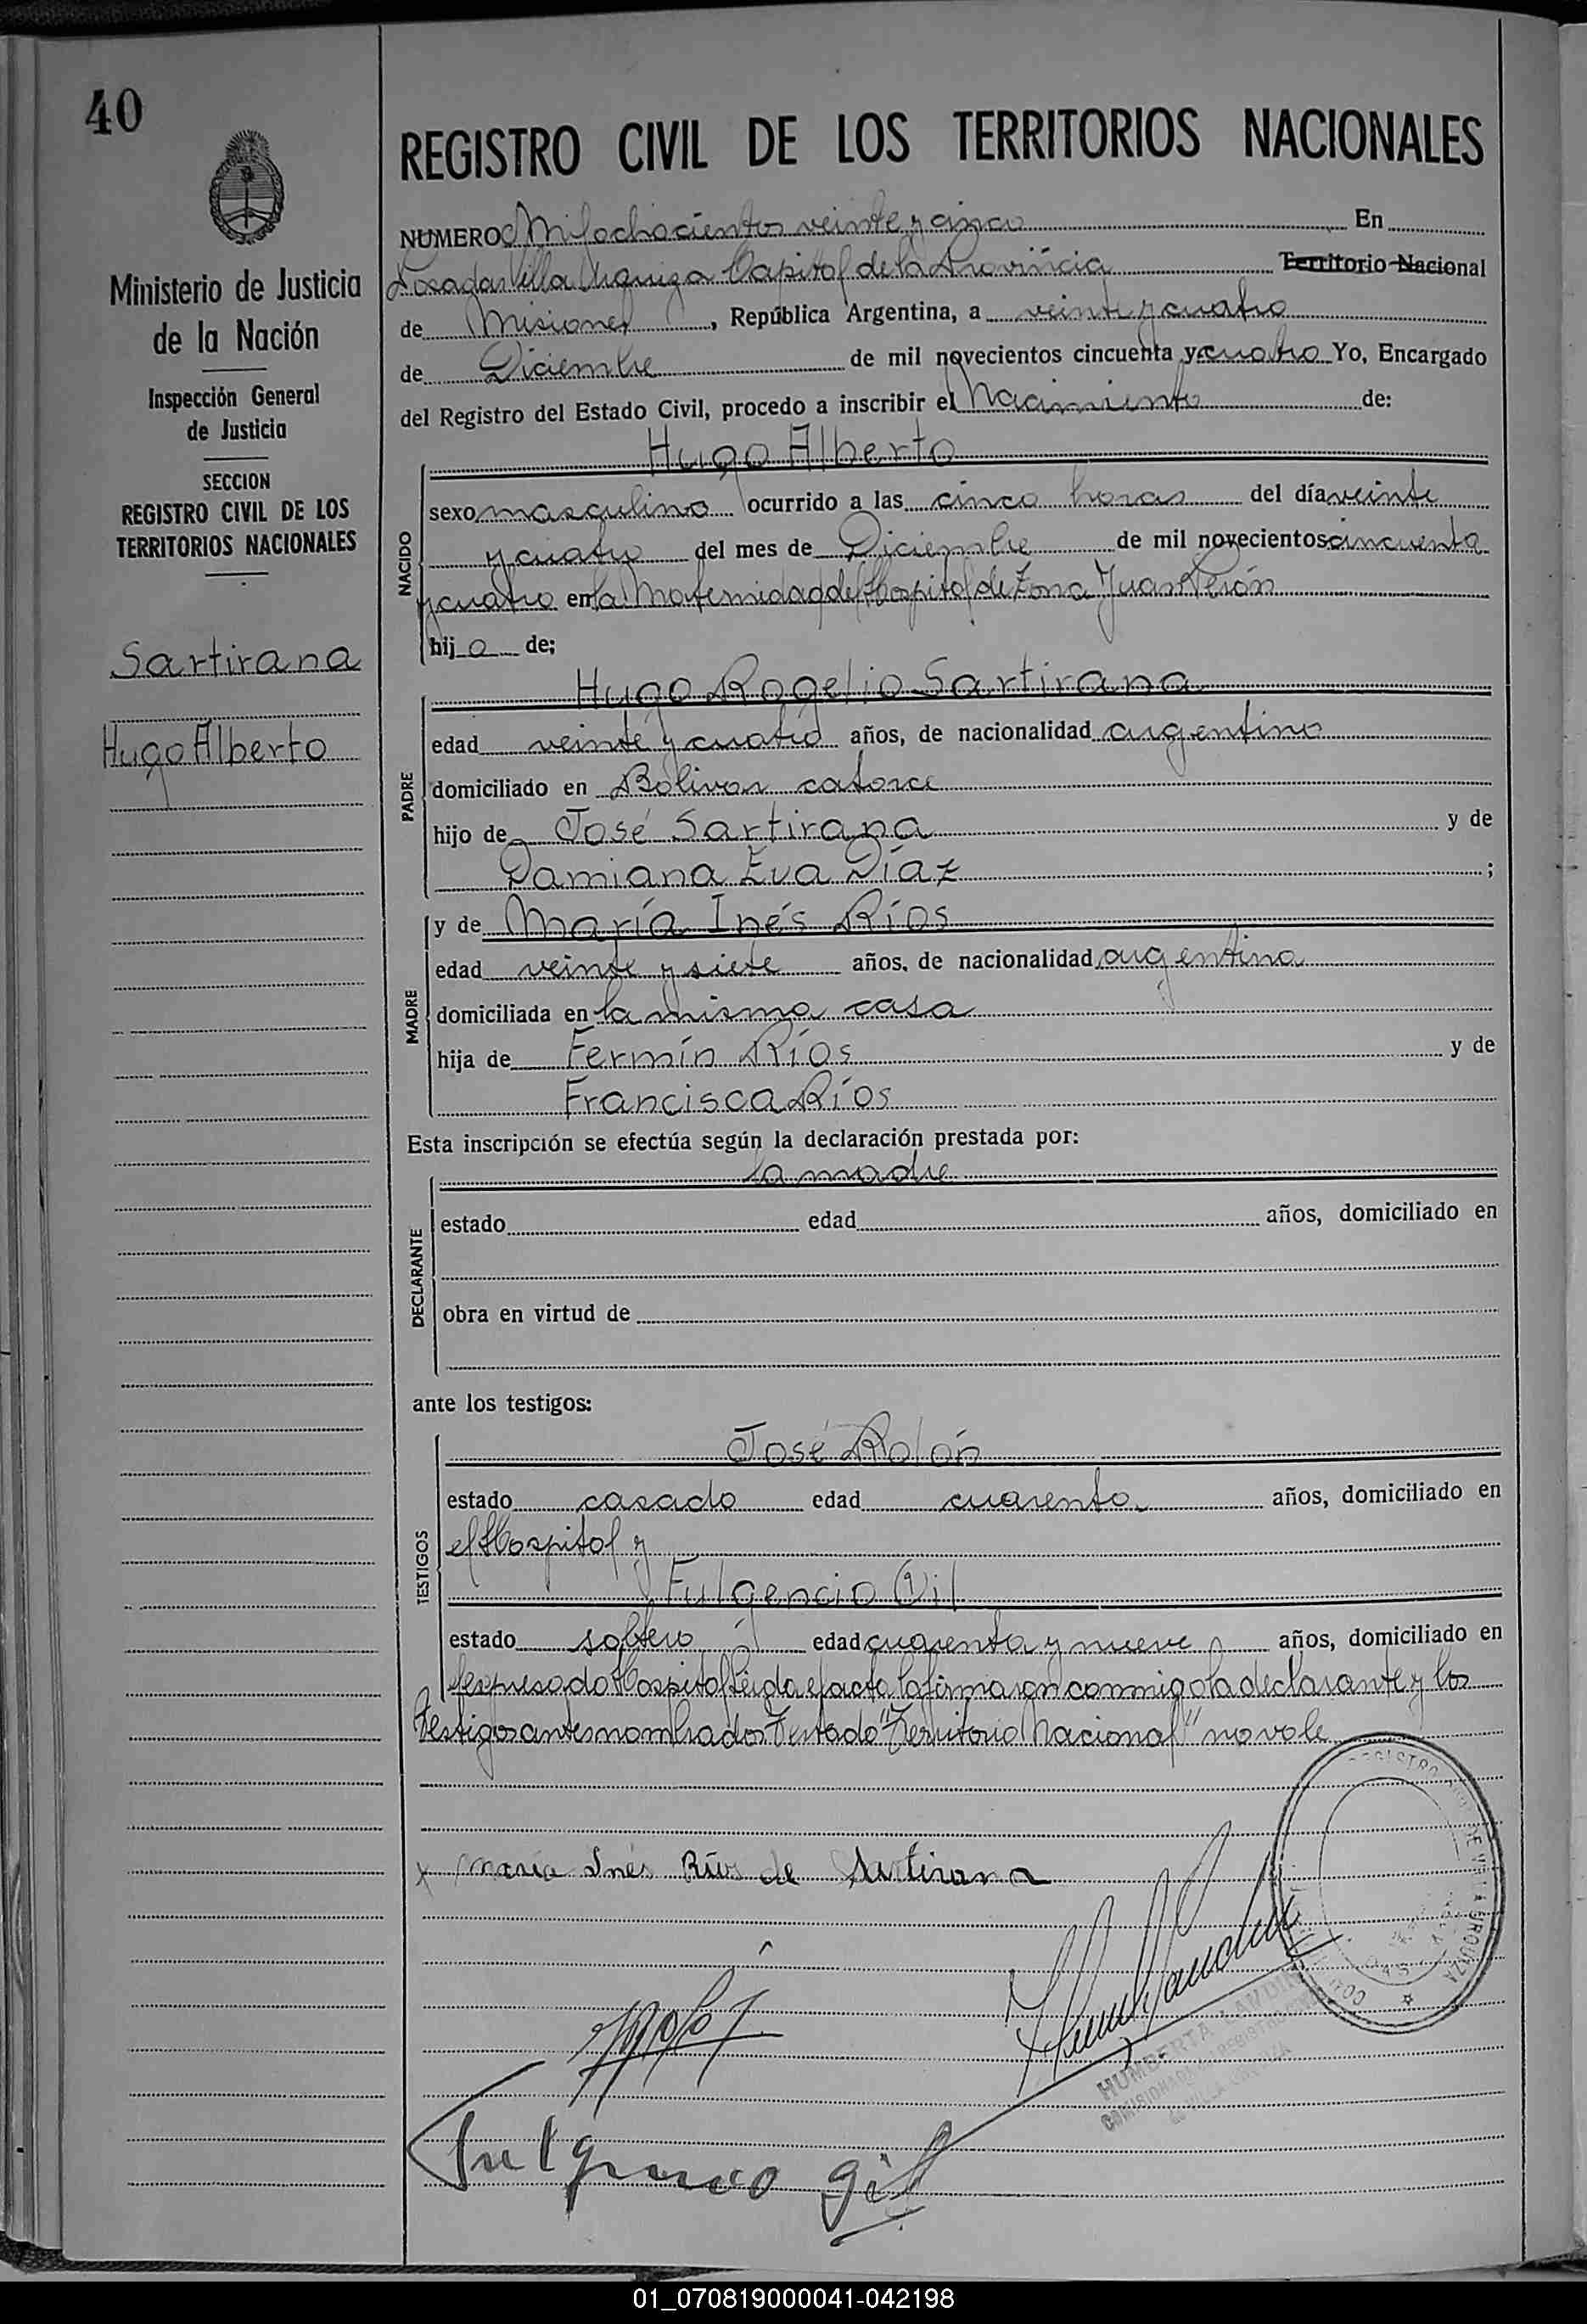 40
Ministerio de Justicia
de la Nación
Inspección General
de Justicia
SECCION
REGISTRO CIVIL DE LOS
TERRITORIOS NACIONALES
Sartirana
Hugo Alberto
REGISTRO CIVIL DE LOS TERRITORIOS NACIONALES
NUMERO Mil ochocientos veinte y cinco En
Posadas Villa Urquiza Capital de la Provincia Territorio Nacional
de Misiones, República Argentina, a veinte y cuatro
de Diciembre de mil novecientos cincuenta y cuatro Yo, Encargado
del Registro del Estado Civil, procedo a inscribir el Nacimiento de:
Hugo Alberto
NACIDO
sexo masculino ocurrido a las cinco horas del día veinte
y cuatro del mes de Diciembre de mil novecientos cincuenta
y cuatro en la Maternidad del Hospital de Zona Juan Perón
hijo de;
Hugo Rogelio Sartirana
PADRE
edad veinte y cuatro años, de nacionalidad argentino
domiciliado en Bolivar catorce
hijo de José Sartirana y de
Damiana Eva Díaz ;
MADRE
y de María Inés Ríos
edad veinte y siete años, de nacionalidad argentina
domiciliada en la misma casa
hija de Fermín Ríos y de
Francisca Ríos
Esta inscripción se efectúa según la declaración prestada por:
la madre
DECLARANTE
estado edad años, domiciliado en
obra en virtud de
ante los testigos:
José Rolón
TESTIGOS
estado casado edad cuarenta años, domiciliado en
el Hospital y
Fulgencio Gil
estado soltero edad cuarenta y nueve años, domiciliado en
el expresado Hospital Leída el acta la firmaron conmigo la declarante y los
testigos antes nombrados. Testado "Territorio Nacional" no vale
x María Inés Ríos de Sartirana
HUMBERTA LANDIN
Fulgencio Gil
01_070819000041-042198